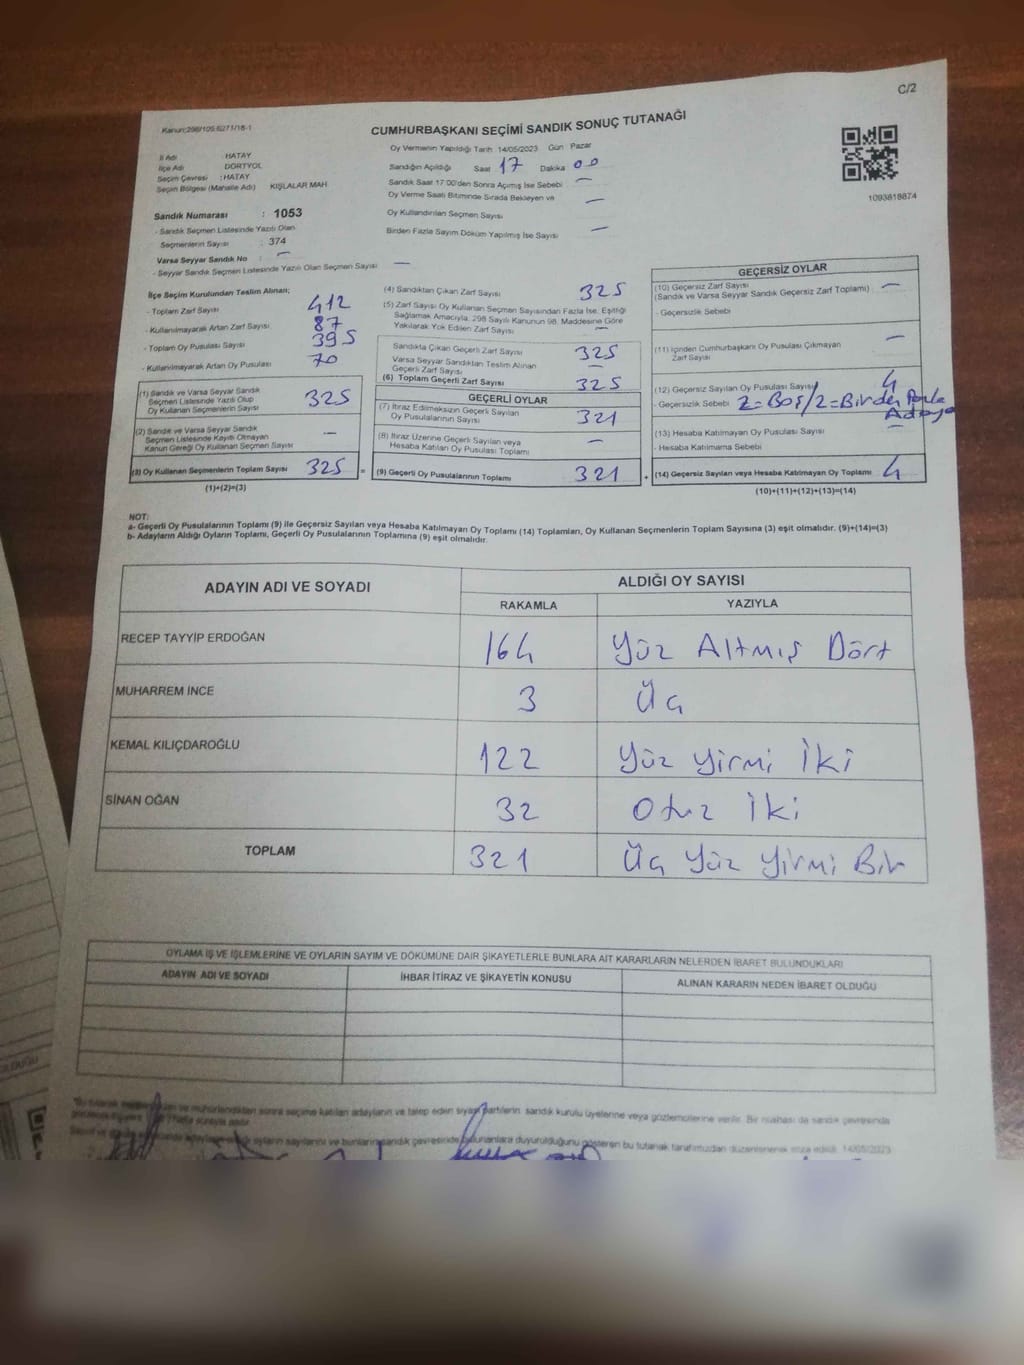 C/2
Kanun:298/109.6271/18-1
CUMHURBAŞKANI SEÇİMİ SANDIK SONUÇ TUTANAĞI
İl Adı : HATAY
İlçe Adı : DÖRTYOL
Seçim Çevresi : HATAY
Seçim Bölgesi (Mahalle Adı) KIŞLALAR MAH
Sandık Numarası : 1053
- Sandık Seçmen Listesinde Yazılı Olan
Seçmenlerin Sayısı : 374
Varsa Seyyar Sandık No : —
- Seyyar Sandık Listesinde Yazılı Olan Seçmen Sayısı —
Oy Vermenin Yapıldığı Tarih 14/05/2023 Gün Pazar
Sandığın Açıldığı Saat 17 Dakika 00
Sandık Saat 17:00'den Sonra Açımış İse Sebebi —
Oy Verme Saati Bitiminde Sırada Bekleyen ve —
Oy Kullandırılan Seçmen Sayısı
Birden Fazla Sayım Döküm Yapılmış İse Sayısı —
1093818874
İlçe Seçim Kurulundan Teslim Alınan;
- Toplam Zarf Sayısı 412
- Kullanılmayarak Artan Zarf Sayısı 87
- Toplam Oy Pusulası Sayısı 395
- Kullanılmayarak Artan Oy Pusulası 70
(1) Sandık ve Varsa Seyyar Sandık
Seçmen Listesinde Yazılı Olup
Oy Kullanan Seçmenlerin Sayısı 325
(2) Sandık ve Varsa Seyyar Sandık
Seçmen Listesinde Kayıtlı Olmayan
Kanun Gereği Oy Kullanan Seçmen Sayısı —
(3) Oy Kullanan Seçmenlerin Toplam Sayısı 325 =
(1)+(2)=(3)
(4) Sandıktan Çıkan Zarf Sayısı 325
(5) Zarf Sayısı Oy Kullanan Seçmen Sayısından Fazla İse, Eşitliği
Sağlamak Amacıyla, 298 Sayılı Kanunun 98. Maddesine Göre
Yakılarak Yok Edilen Zarf Sayısı —
Sandıkta Çıkan Geçerli Zarf Sayısı 325
Varsa Seyyar Sandıktan Teslim Alınan
Geçerli Zarf Sayısı —
(6) Toplam Geçerli Zarf Sayısı 325
GEÇERLİ OYLAR
(7) İtiraz Edilmeksizin Geçerli Sayılan
Oy Pusulalarının Sayısı 321
(8) İtiraz Üzerine Geçerli Sayılan veya
Hesaba Katılan Oy Pusulası Toplamı —
(9) Geçerli Oy Pusulalarının Toplamı 321 +
GEÇERSİZ OYLAR
(10) Geçersiz Zarf Sayısı —
(Sandık ve Varsa Seyyar Sandık Geçersiz Zarf Toplamı)
- Geçersizlik Sebebi
(11) İçinden Cumhurbaşkanı Oy Pusulası Çıkmayan
Zarf Sayısı —
(12) Geçersiz Sayılan Oy Pusulası Sayısı 4
- Geçersizlik Sebebi 2=Boş/2=Birden Fazla
Adaya
(13) Hesaba Katılmayan Oy Pusulası Sayısı —
- Hesaba Katılmama Sebebi
(14) Geçersiz Sayılan veya Hesaba Katılmayan Oy Toplamı 4
(10)+(11)+(12)+(13)=(14)
NOT:
a- Geçerli Oy Pusulalarının Toplamı (9) ile Geçersiz Sayılan veya Hesaba Katılmayan Oy Toplamı (14) Toplamları, Oy Kullanan Seçmenlerin Toplam Sayısına (3) eşit olmalıdır. (9)+(14)=(3)
b- Adayların Aldığı Oyların Toplamı, Geçerli Oy Pusulalarının Toplamına (9) eşit olmalıdır.
ADAYIN ADI VE SOYADI ALDIĞI OY SAYISI
RAKAMLA YAZIYLA
RECEP TAYYİP ERDOĞAN 164 Yüz Altmış Dört
MUHARREM İNCE 3 Üç
KEMAL KILIÇDAROĞLU 122 Yüz Yirmi İki
SİNAN OĞAN 32 Otuz İki
TOPLAM 321 Üç Yüz Yirmi Bir
OYLAMA İŞ VE İŞLEMLERİNE VE OYLARIN SAYIM VE DÖKÜMÜNE DAİR ŞİKAYETLERLE BUNLARA AİT KARARLARIN NELERDEN İBARET BULUNDUKLARI
ADAYIN ADI VE SOYADI İHBAR İTİRAZ VE ŞİKAYETİN KONUSU ALINAN KARARIN NEDEN İBARET OLDUĞU
sonra seçime katılan adayların ve talep eden siyasi partilerin sandık kurulu üyelerine veya gözlemcilerine verilir. Bir nüshası da sandık çevresinde
oyların sayılarını ve bunların sandık çevresinde bulunanlara duyurulduğunu gösteren bu tutanak tarafımızdan düzenlenerek imza edildi. 14/05/2023